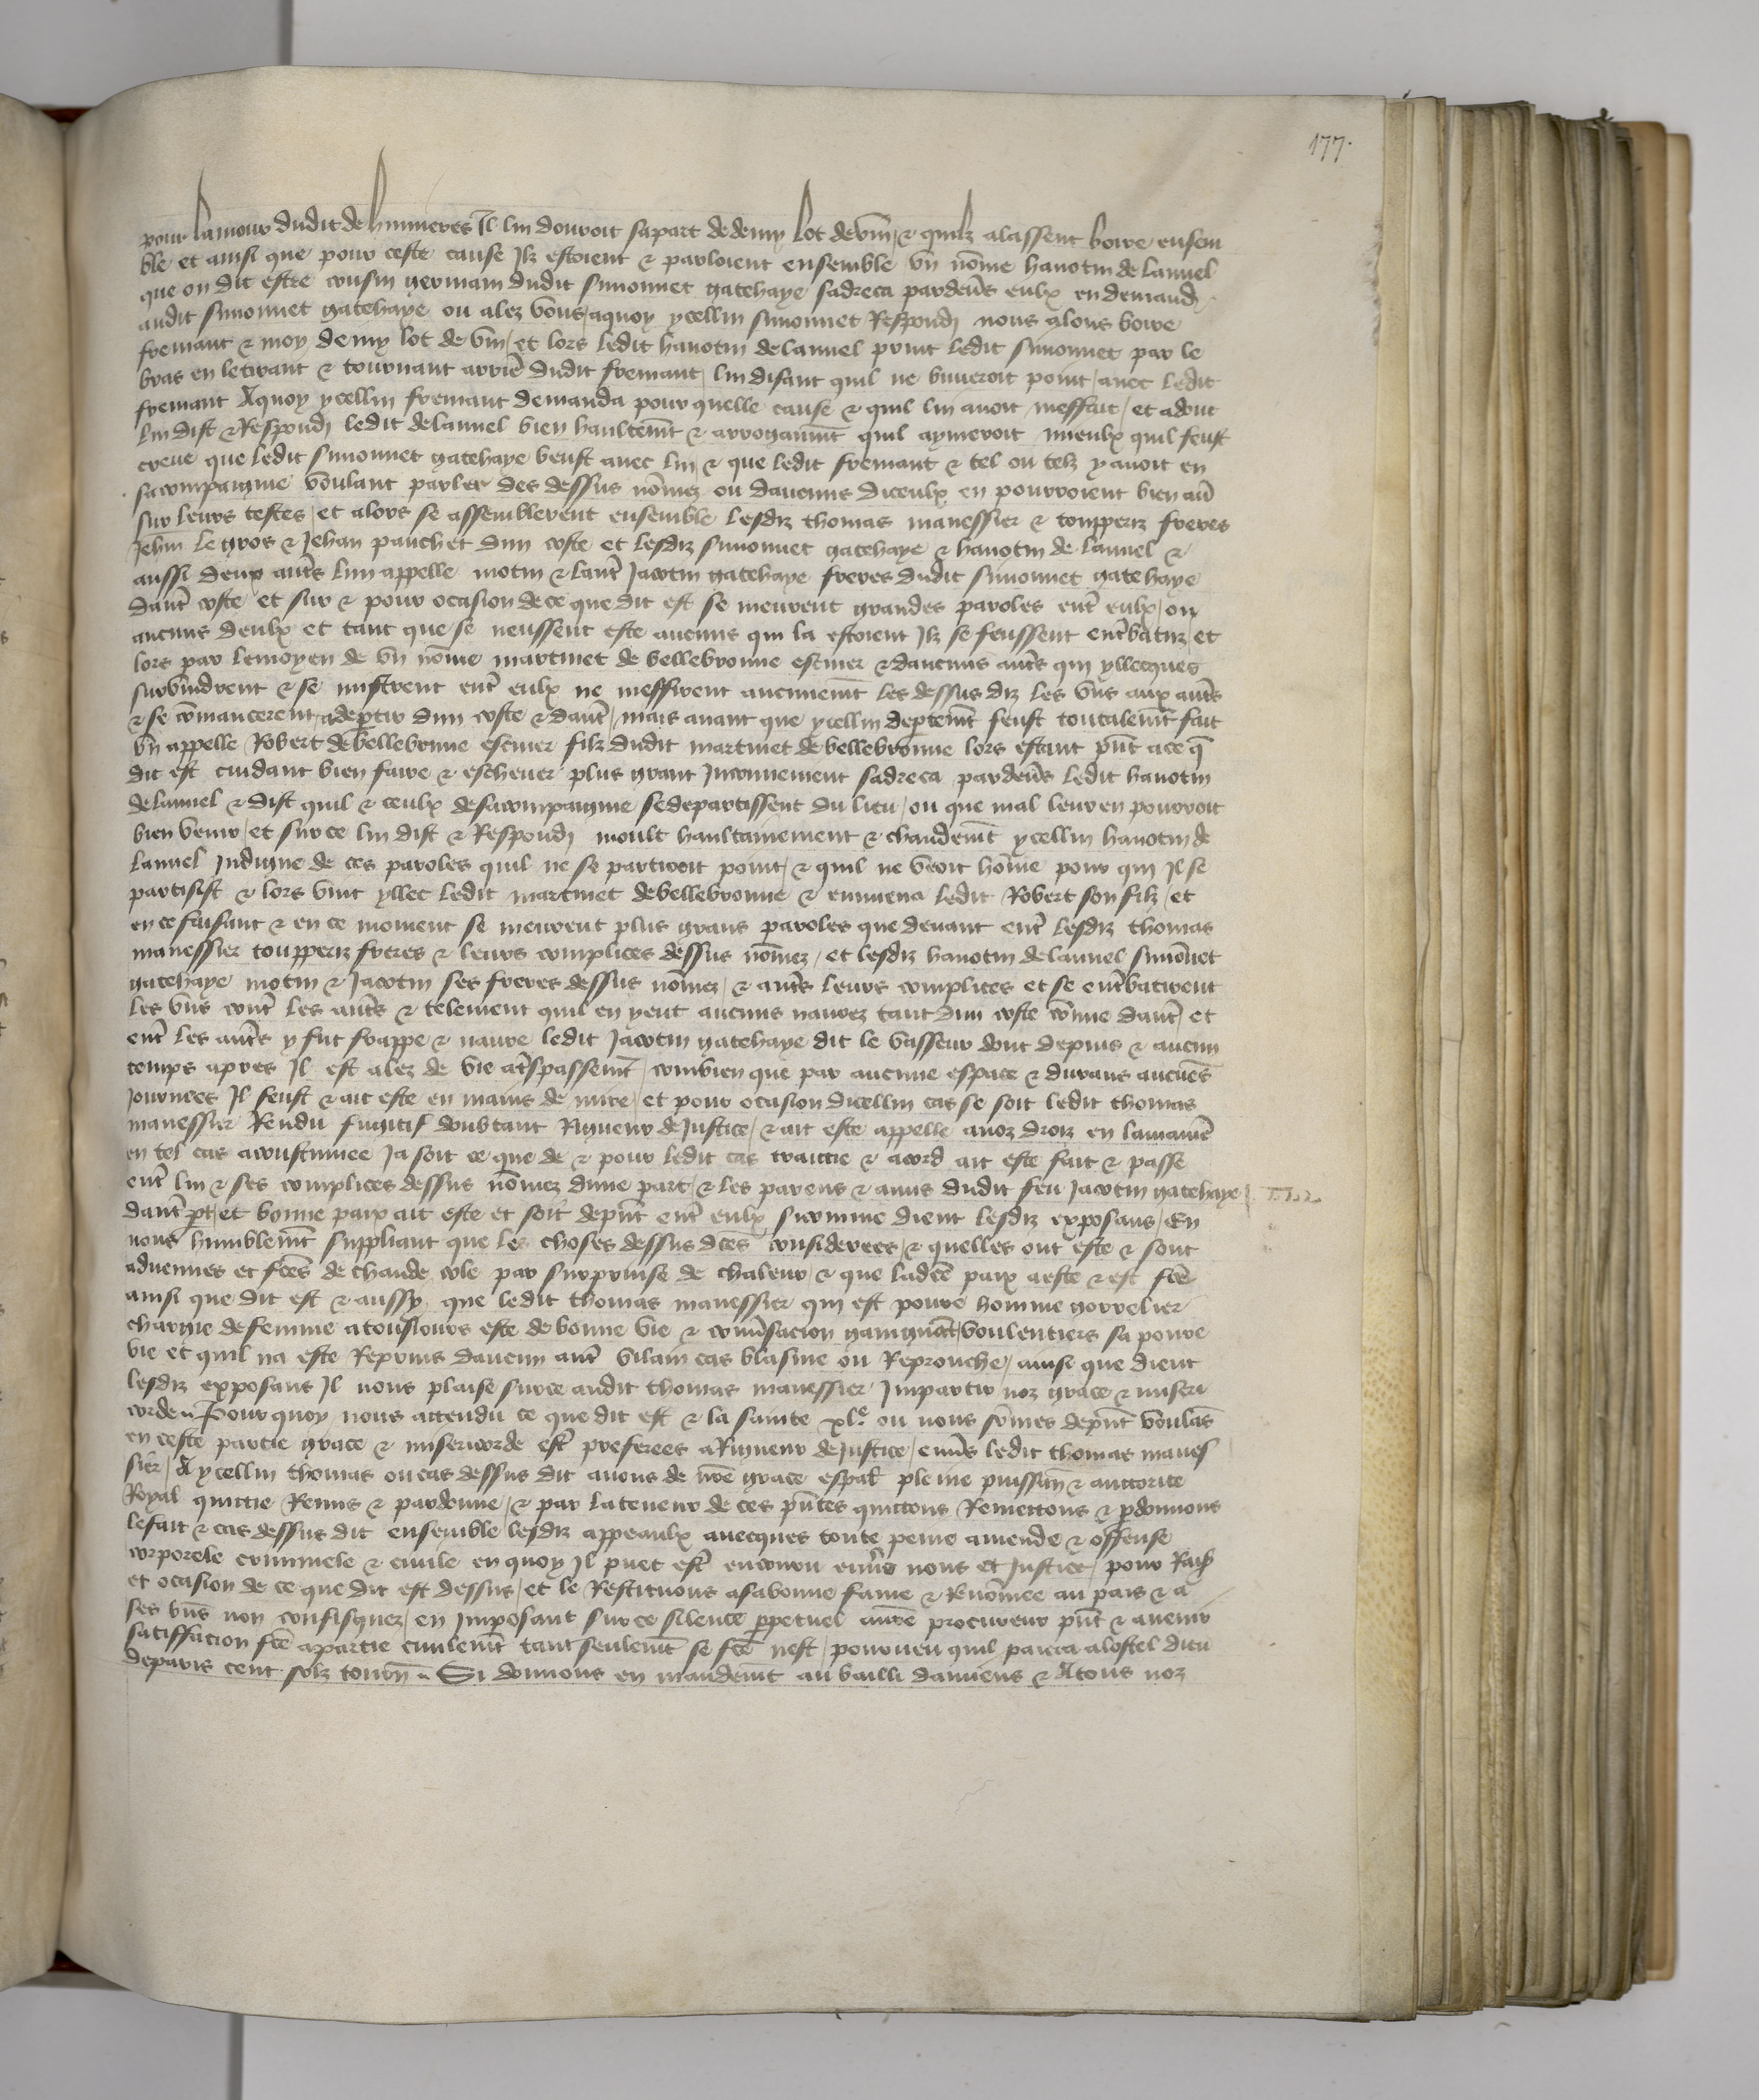 177.
pour lamour dudit de humieres Il lui donroit sa part de demy lot de vin, & quilz alassent boire ensem
ble et ainsi que pour ceste cause Ilz estoient & parloient ensemble vn nōme hanotin de lannel
que on dit estre cousin germain dudit simonnet gatehaye sadreca pardeūs eulx en demand
audit simonnet gatehaye ou alez vous, aquoy ycellui simonnet Respondi nous alons boire
fremant & moy demy lot de vin, et lors ledit hanotin de lannel print ledit simonnet par le
bras en le tirant & tournant arriē dudit fremant, lui disant quil ne buueroit point, auec ledit
fremant Aquoy ycellui fremant demanda pour quelle cause & quil lui auoit meffait, et adont
lui dist & Respondi ledit de lannel bien haultem̄t & arrogaum̄t quil aymeroit mieulx quil feust
creue que ledit simonnet gatehaye beust auec lui, & que ledit fremant & tel ou telz y auoit en
sa compaignie voulant parler des dessus nōmez ou daucuns diceulx en pourroient bien aū
sur leurs testes, et alors se assemblerent ensemble lesdiz thomas manessier & toupperiz freres
Jehin le gros & Jehan panchet dun coste et lesdiz simonnet gatehaye & hanotin de lannel &
aussi deux aut̄s lun appelle motin & laut̄ Jacotin gatehaye freres dudit simonnet gatehaye
daut̄ coste et sur & pour ocasion de ce que dit est se meurent grandes paroles ent̄ eulx, ou
aucuns deulx et tant que se neussent este aucuns qui la estoient Ilz se feussent ent̄batuz, et
lors par le moyen de vn nōme martinet de bellebronne escuier & daucuns aut̄s qui yllecques
suruindrent & se mistrent ent̄ eulx ne meffirent aucunem̄t les dessus diz les vns aux aut̄s
& se cōmancerent, a deptir dun coste & daut̄, mais auant que ycellui deptem̄t feust toutalem̄t fait
vn appelle Robert de bellebronne escuier filz dudit martinet de bellebronne lors estant pn̄t a ce q̄
dit est cuidant bien faire & escheuer plus grant Inconuenient sadreca pardeūs ledit hanotin
de lannel & dist quil & ceulx de sa compaignie se departissent du lieu, ou que mal leur en pourroit
bien venir, et sur ce lui dist & Respondi moult haultainement & chaudem̄t ycellui hanotin de
lannel Indigne de ces paroles quil ne se partiroit point, & quil ne veoit hōme pour qui Il se
partisist & lors vint yllec ledit martinet de bellebronne & enmena ledit Robert son filz, et
en ce faisant & en ce moment se meurent plus grans paroles que deuant ent̄ lesdiz thomas
manessier toupperiz freres & leurs complices dessus nōmez, et lesdiz hanotin de lannel simōnet
gatehaye motin & Jacotin ses freres dessus nōmez, & aut̄s leurs complices et se ent̄batirent
les vns cont̄ les aut̄s & telement quil en y eut aucuns naurez tant dun coste cōme daut̄, et
ent̄ les aut̄s y fut frappe & naure ledit Jacotin gatehaye dit le vasseur dont depuis & aucun
temps apres Il est alez de vie at̄spassem̄t, combien que par aucune espace & durans aucūes
Journees Il feust & ait este en mains de mire, et pour ocasion dicellui cas se soit ledit thomas
manessier Rendu fugitif doubtant Rigueur de Justice, & ait este appelle a noz droiz en la maniē
en tel cas acoustumee Ja soit ce que de & pour ledit cas traittie & acord ait este fait & passe
ent̄ lui & ses complices dessus nōmez dune part, & les parens & amis dudit feu Jacotin gatehaye
daut̄ pt, et bonne paix ait este et soit depn̄t ent̄ eulx sicomme dient lesdiz exposans, En
nous humblem̄t suppliant que les choses dessus dces considerees, & quelles ont este & sont
aduenues et fc̄es de chaude cole par surprinse de chaleur, & que ladc̄e paix a este & est fc̄e
ainsi que dit est & aussy que ledit thomas manessier qui est poure homme gorrelier
chargie de femme a tousiours este de bonne vie & conūsacion gaignāt voulentiers sa poure
vie et quil na este Reprins daucun aut̄ vilain cas blasme ou Reprouche, ainsi que dient
lesdiz exposans Il nous plaise sur ce audit thomas manessier Impartir noz grace & miseri
corde Pour quoy nous attendu ce que dit est & la sainte xle ou nous sōmes depn̄t voulās
en ceste partie grace & misericorde est̄ preferees a Rigueur de Justice, enūs ledit thomas manes
sier, A ycellui thomas ou cas dessus dit auons de nr̄e grace espal pleine puissan & auctorite
Royal quittie Remis & pardonne, & par la teneur de ces pn̄tes quittons Remettons & pdonnons
le fait & cas dessus dit ensemble lesdiz appeaulx auecques toute peine amende & offense
corporele criminele & ciuile en quoy Il puet est̄ encouru enūs nous et Justice, pour Rais
et ocasion de ce que dit est dessus, et le Restituons a sa bonne fame & Renōmee au pais & a
ses bn̄s non confisquez, en Imposant sur ce silence ppetuel a nr̄e procureur pn̄t & auenir
satiffacion fc̄e a partie ciuilem̄t tant seulem̄t se fc̄e nest, pourueu quil paiera a lostel dieu
de paris cent solz tourn Si donnons en mandem̄t au bailli damiens & A tous noz